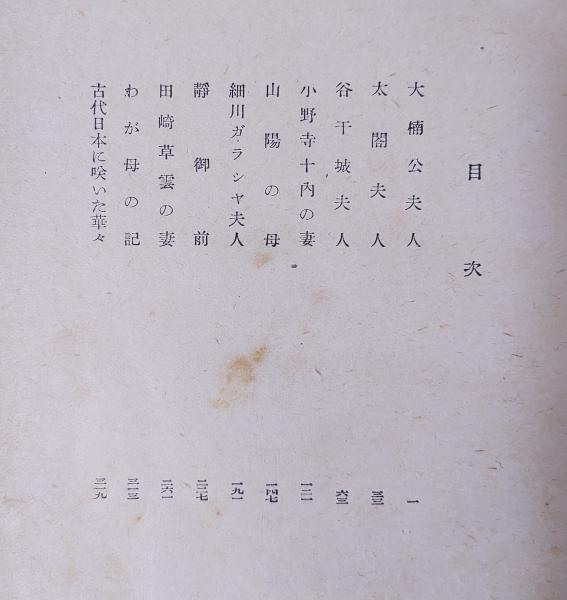 目次
大楠公夫人 一
太閤夫人 三三
谷干城夫人 六三
小野寺十內の妻 一三一
山陽の母 一四七
細川ガラシヤ夫人 一九一
靜御前 二二七
田崎草雲の妻 二六一
わが母の記 三一三
古代日本に咲いた華々 三一九